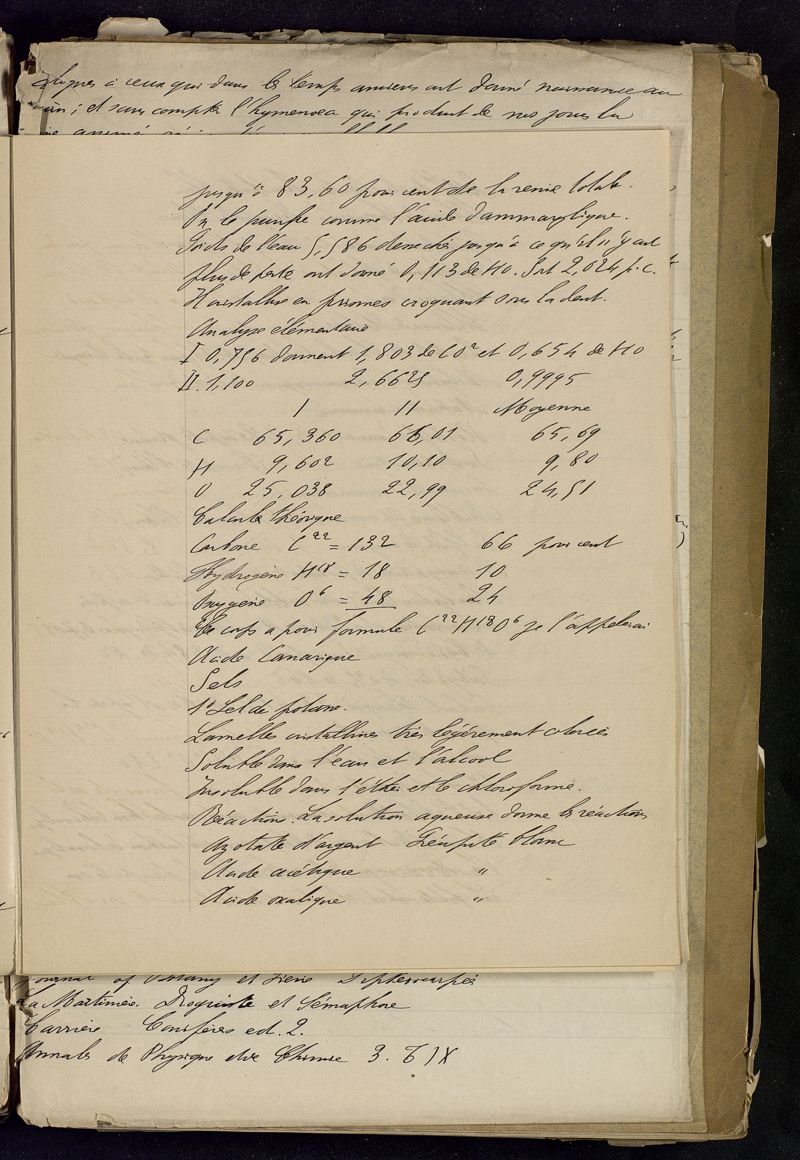 à ceux qui dans les temps anciens ont donné naissance au
; et sans compter l'hymenoea qui produit de nos jours la
jusqu'à 83,60 pour cent de la resine totale.
On le purifie comme l'acide d'ammarylique.
Poids de l'eau 5,586 desseché jusqu'à ce qu'il n'y ait
plus de perte ont donné 0,113 de HO. Soit 2,024 p. c.
Il cristallise en prismes croquant sous la dent.
Analyse élémentaire
I 0,756 donnent 1,803 de CO² et 0,654 de HO
II. 1,100 2,6625 0,9995
I II Moyenne
C 65,360 66,01 65,69
H 9,602 10,10 9,80
O 25,038 22,99 24,51
Calcule théorique
Carbone C²² = 132 66 pour cent
Hydrogène H¹⁸ = 18 10
Oxygène O⁶ = 48 24
Ce corps a pour formule C²²H¹⁸O⁶ je l'appelerai
Acide Canarique
Sels
1° Sel de potasse.
Lamelles cristallines très légérement colorées
Soluble dans l'eau et l'alcool
Insoluble dans l'éther et le chloroforme.
Réaction. La solution aqueuse donne les réactions
Azotate d'argent Précipité blanc
Acide acétique "
Acide oxalique "
Journal of Botany et Diptérocarpées
La Martinière. Droguiste et Sémaphore
Carrière Conifères ed. 2.
Annales de Physique et de Chimie 3. T IX